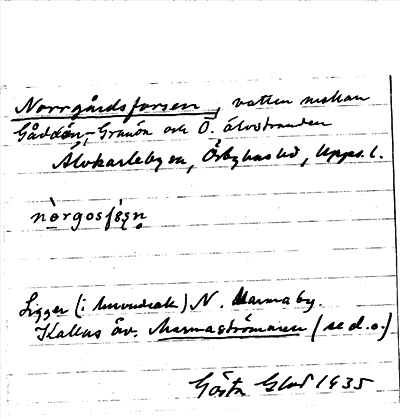 Norrgårdsforsen, vatten mellan
Gåddön, Granön och Ö. älvstranden
Älvkarleby sn, Örbyhus hd, Upps. l.
nòrgosfo̤ṣṇ
Ligger (i huvudsak) N. Marmaby.
Kallas äv. Marmaströmmen (se d.o.)
Gösta Glad 1935